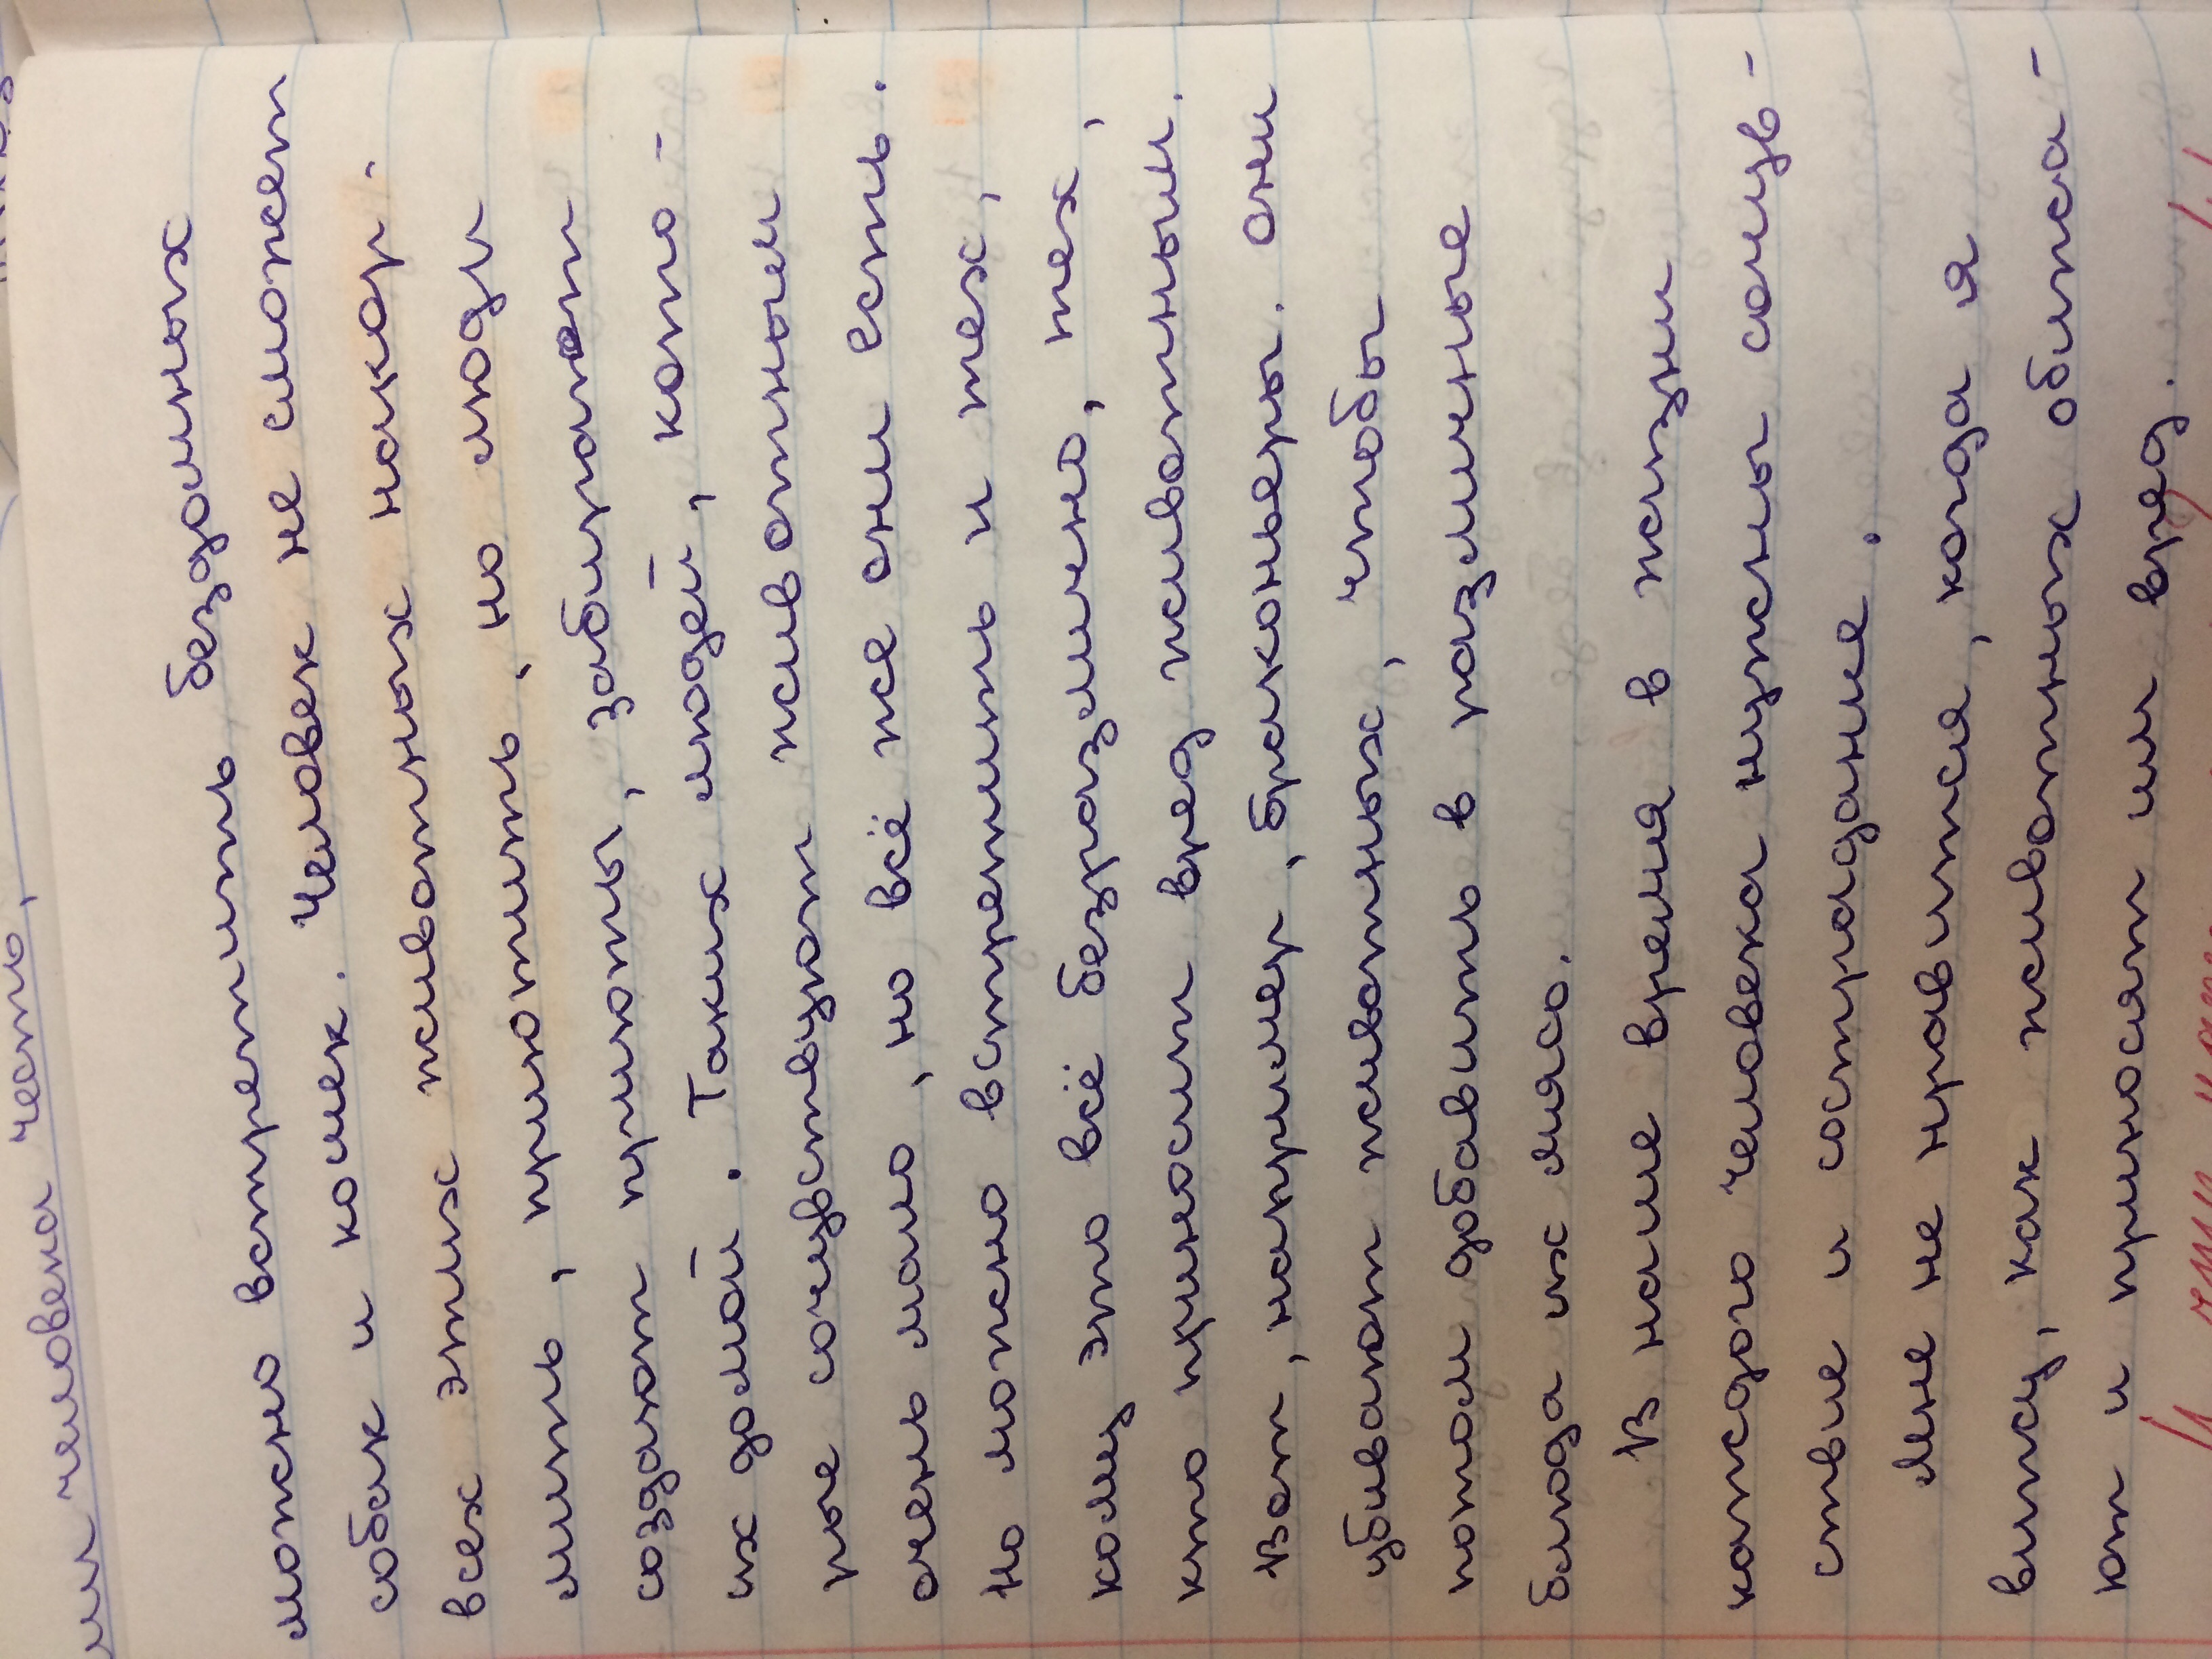 человека
можно встретить бездомных
собак и кошек. Человек не сможет
всех этих животных накор-
мить, приютить, но люди
создают приюты, забирают
их домой. Таких людей, кото-
рые сочувствуют животным
очень мало, но всё же они есть.
Но можно встретить и тех,
кому это всё безразлично, тех,
кто приносит вред животным.
Вот, например, браконьеры. они
убивают животных, чтобы
потом добавить в различные
блюда их мясо.
В наше время в жизни
каждого человека нужны сочув-
ствие и сострадание.
Мне не нравится, когда я
вижу, как животных обижа-
ют и приносят им вред.